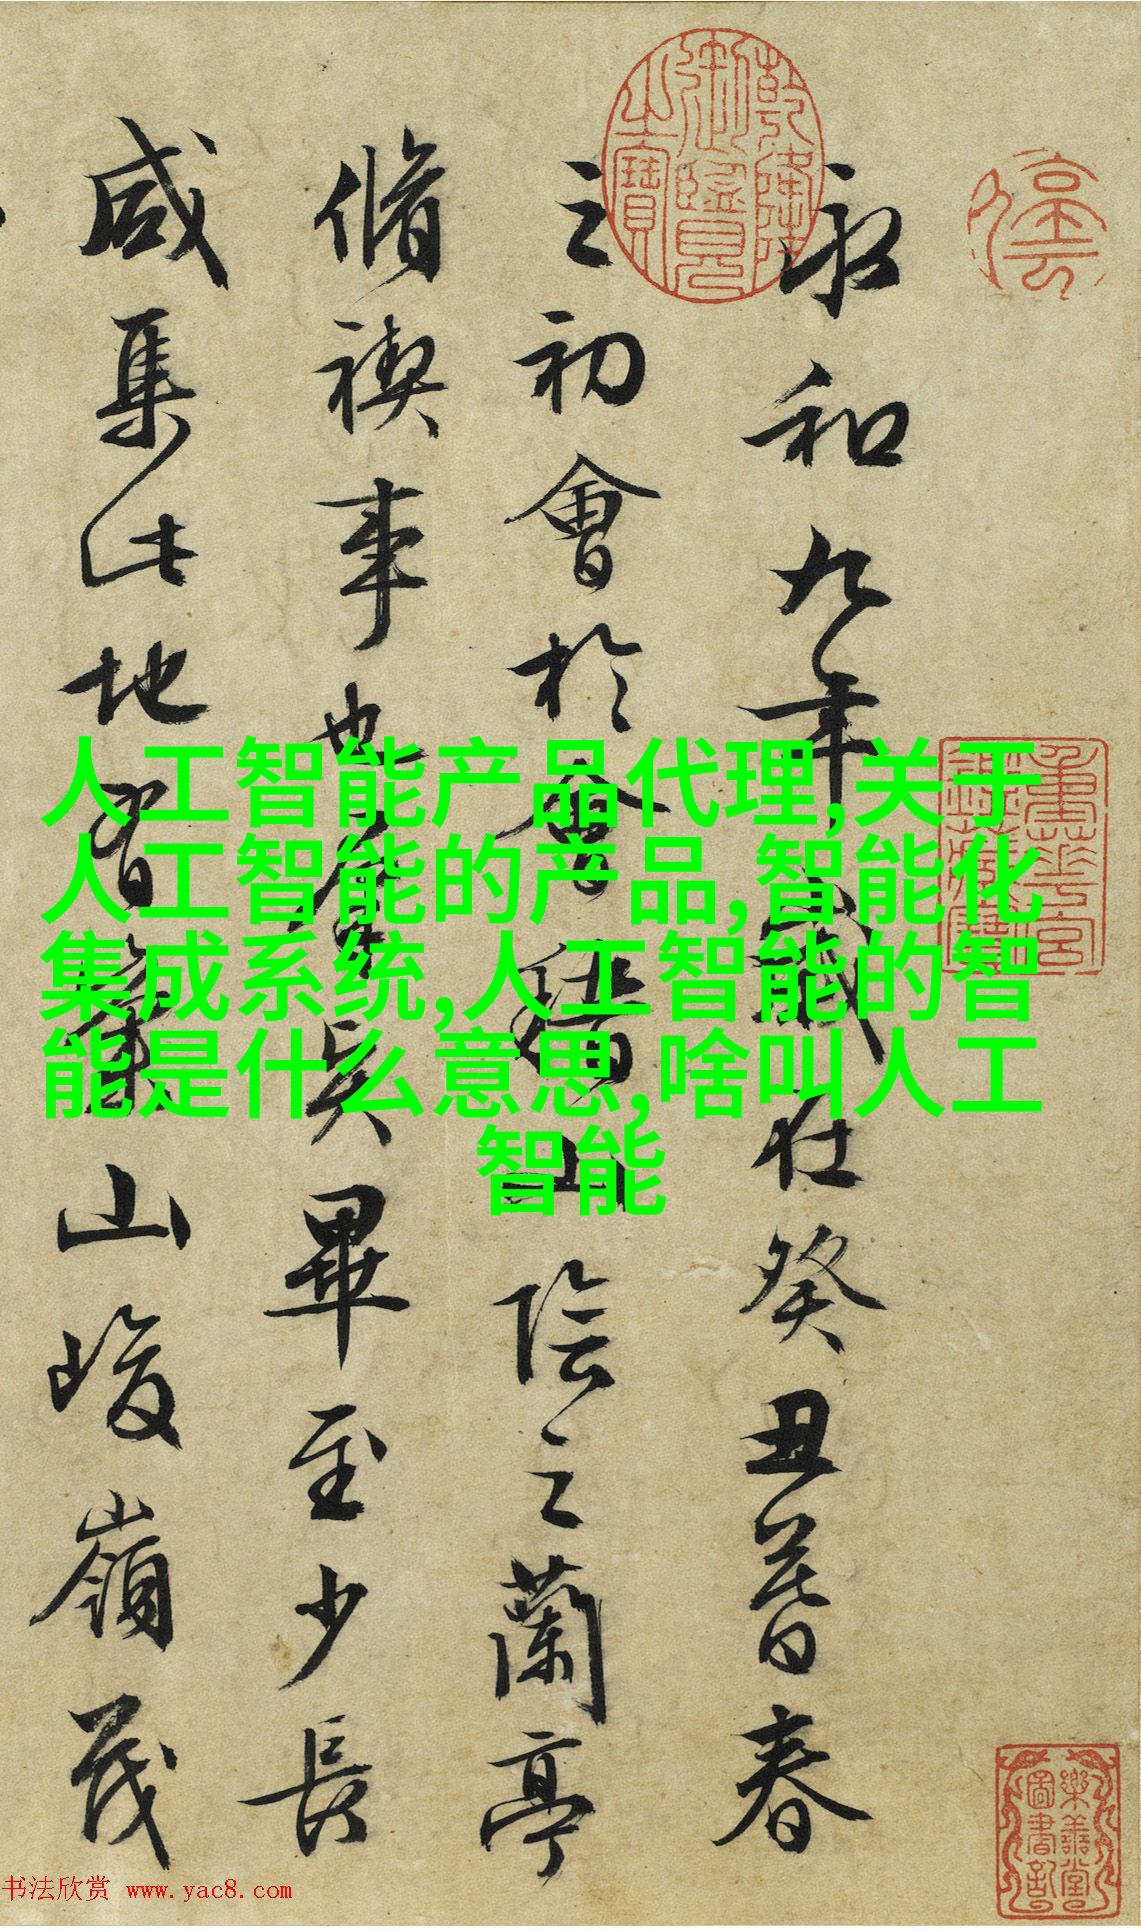 永和九年歲在癸丑暮春
之初會於會稽山陰之蘭亭
脩禊事也羣賢畢至少長
咸集此地有崇山峻嶺茂
乾隆御覽之寶
重華宮鑑藏寶
樂善堂圖書記
人工智能产品代理,关于
人工智能的产品,智能化
集成系统,人工智能的智
能是什么意思,啥叫人工
智能
书法欣赏 www.yac8.com